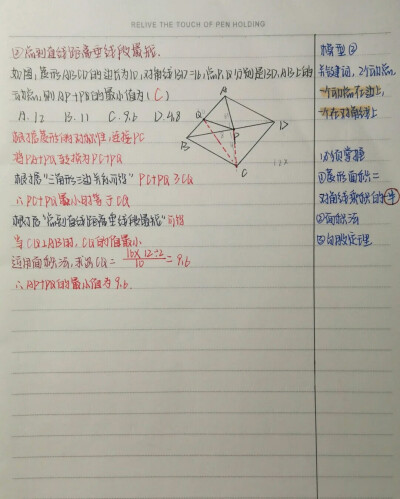 RELIVE THE TOUCH OF PEN HOLDING
②点到直线距离垂线段最短.
如图,菱形ABCD的边长为10,对角线BD=16,点P,Q分别是BD,AB上的
动点,则AP+PQ的最小值为(C)
A.12 B.11 C.9.6 D.4.8
根据菱形的对称性,连接PC
将PA+PQ转换为PC+PQ
根据"三角形三边关系可得"PC+PQ≥CQ
∴PC+PQ最小时等于CQ
根据"点到直线距离垂线段最短"可得
当CQ⊥AB时,CQ的值最小
运用面积法,求出CQ=16×12÷2/10=9.6
∴AP+PQ的最小值为9.6.
A
Q
D
B
P
C
模型②
关键词,2个动点,
一个动点在边上,
一个在对角线上
必须掌握
①菱形面积=
对角线乘积的半
②面积法
③勾股定理